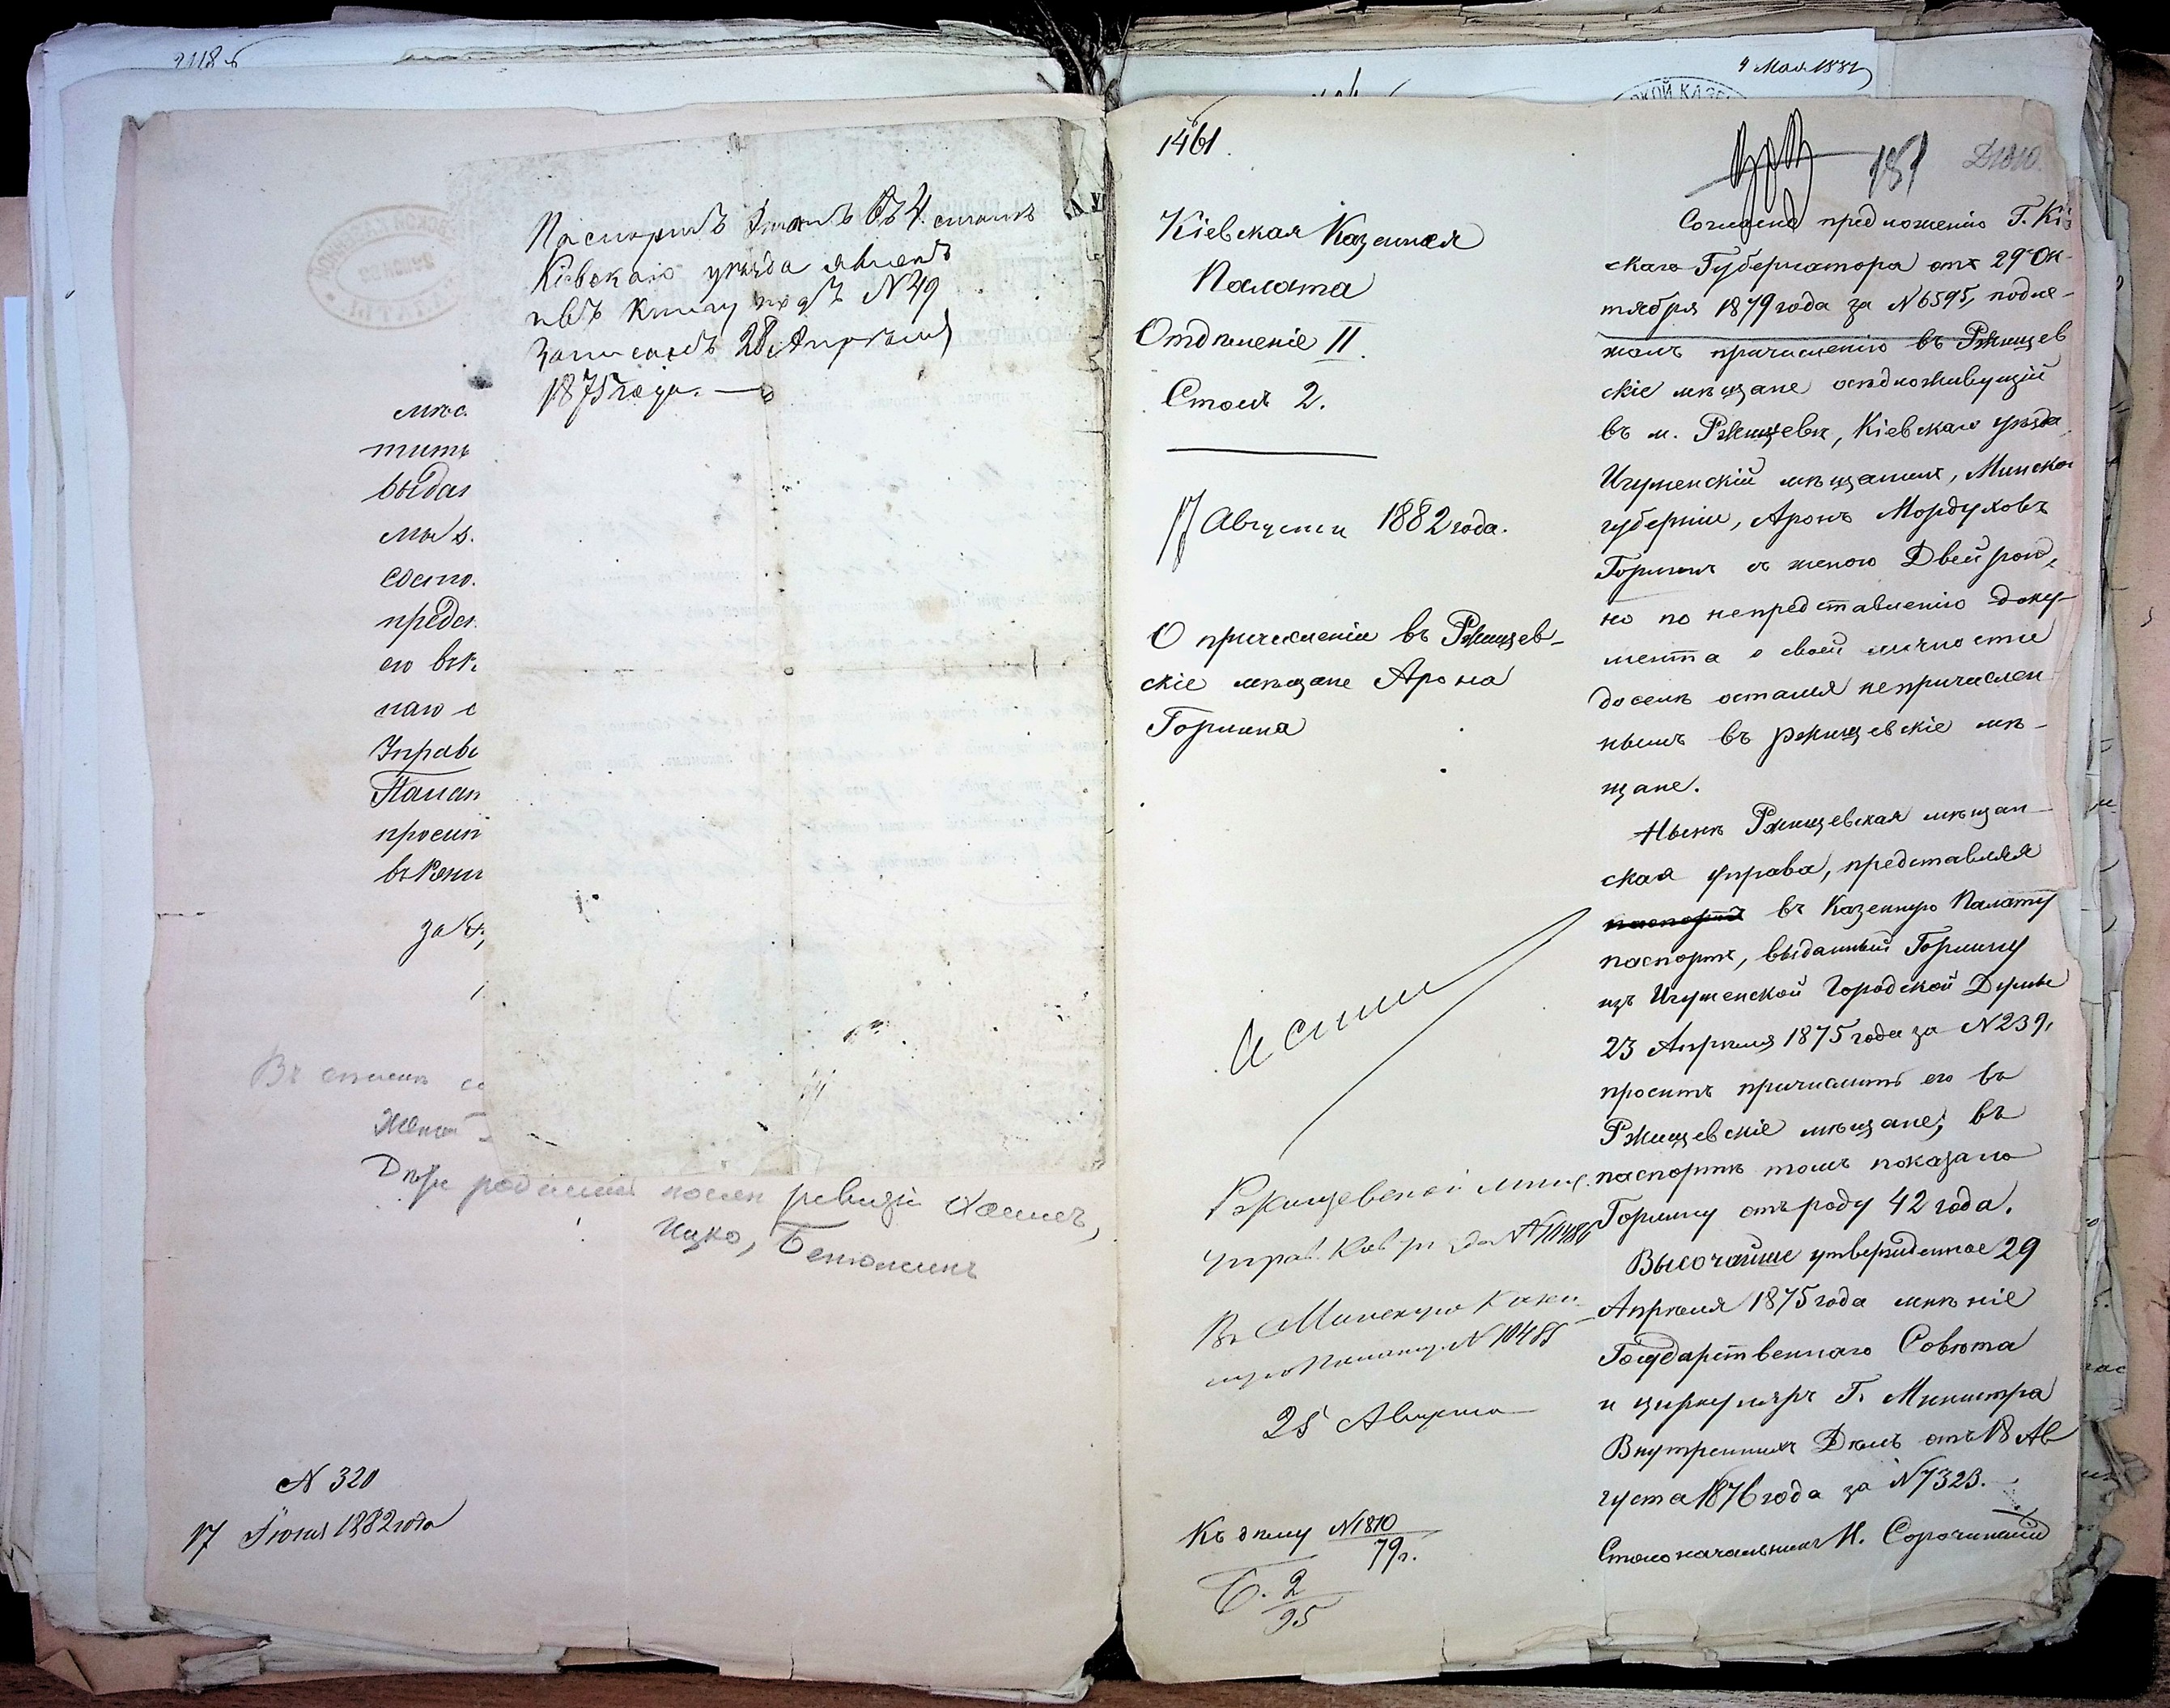 2118 б
Паспортъ въ 4. станъ
Кіевскаго уѣзда явленъ
въ книгу подъ № 49
записанъ 28 Апрѣля
1875 года.
мѣс.
тить
выдан
мы s.
состо.
предст.
его вкл
наго с
Управ
Палат
просит
въ Ржищ
за
Въ списк со
Женой
Дѣти родились послѣ ревизіи Хаимъ,
Ицко, Беньоминъ
N 320
17 Іюня 1882 года
4 Мая 1882
1461.
Кіевская Казенная
Палата
Отдѣленіе II.
Столъ 2.
17 Августа 1882 года.
О причисленіи въ Ржищев-
скіе мѣщане Арона
Горлина
Ржищевской мѣщ.
управ. Кіев. у.
Въ Минскую Казен-
ную Палату. N 10485
25 Августа
Къ дѣлу N 1810
79 г.
Б. 2
95
181 Д1810
Согласно предложенію Г. Кіев
скаго Губернатора отъ 29 Ок-
тября 1879 года за N 6595, подле-
жалъ причисленію въ Ржищев
скіе мѣщане осѣдложивущій
въ м. Ржищевѣ, Кіевскаго уѣзда,
Игуменскій мѣщанинъ, Минской
губерніи, Аронъ Мордуховъ
Горлинъ съ женою Двейрою,
но по непредставленію доку-
мента о своей личности
доселѣ остался непричислен
нымъ въ ржищевскіе мѣ-
щане.
Нынѣ Ржищевская мѣщан-
ская управа, представляя
паспортъ въ Казенную Палату
паспортъ, выданный Горлину
изъ Игуменской Городской Думы
23 Апрѣля 1875 года за N 239,
проситъ причислить его въ
Ржищевскіе мѣщане; въ
паспортѣ томъ показано
Горлину отъ роду 42 года.
Высочайше утвержденное 29
Апрѣля 1875 года мнѣніе
Государственнаго Совѣта
и циркуляръ Г. Министра
Внутреннихъ Дѣлъ отъ 18 Ав
густа 1876 года за N 7323.
Столоначальникъ И. Сорочинскій